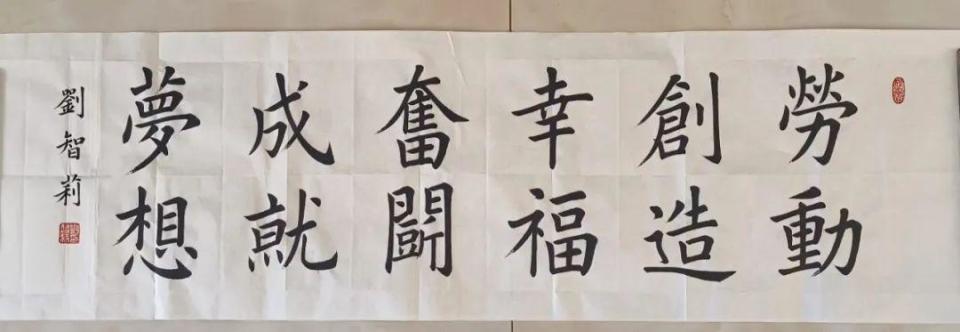 勞動
創造
幸福
奮鬭
成就
夢想
劉智莉